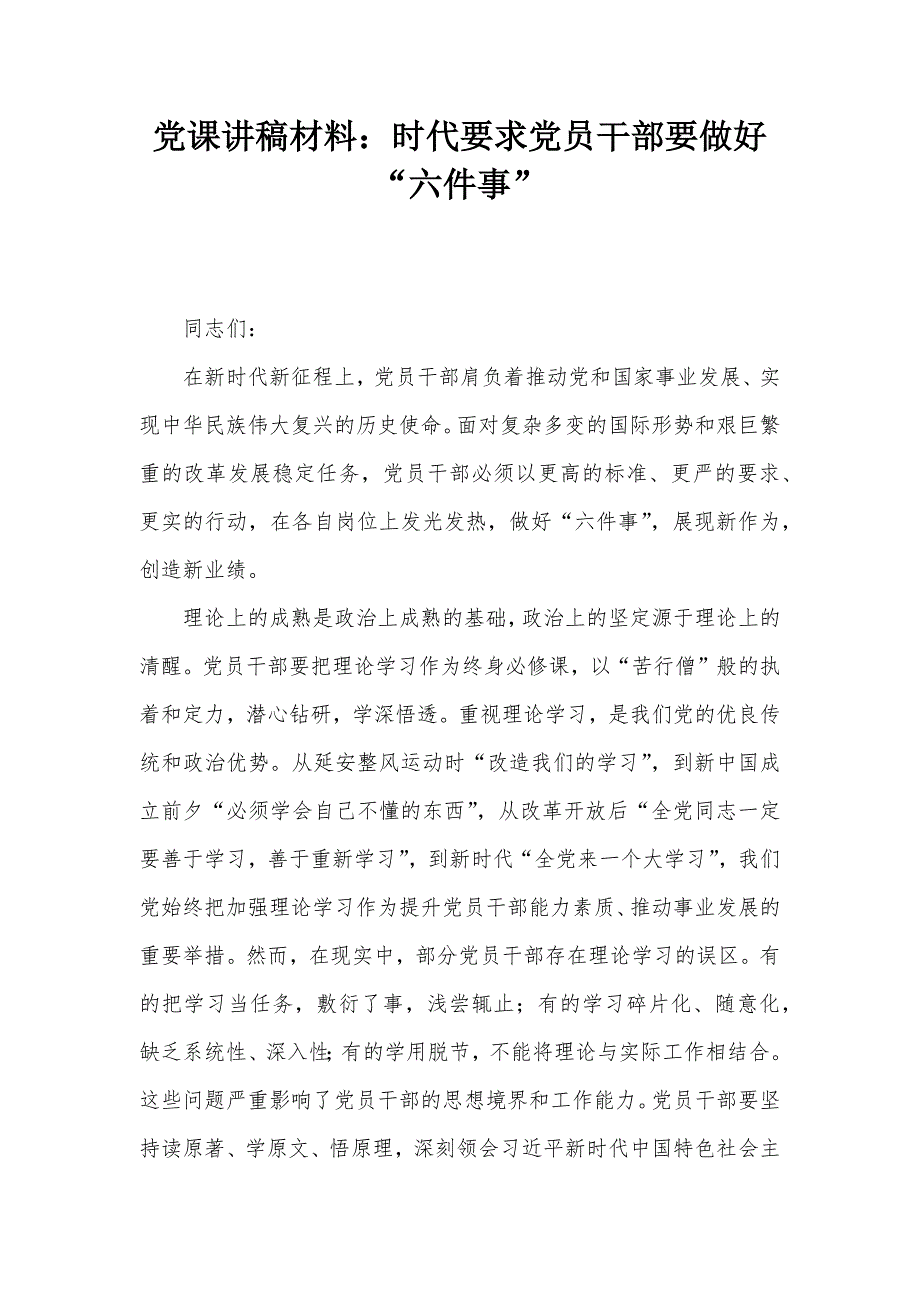 党课讲稿材料：时代要求党员干部要做好
“六件事”
同志们：
在新时代新征程上，党员干部肩负着推动党和国家事业发展、实
现中华民族伟大复兴的历史使命。面对复杂多变的国际形势和艰巨繁
重的改革发展稳定任务，党员干部必须以更高的标准、更严的要求、
更实的行动，在各自岗位上发光发热，做好“六件事”，展现新作为，
创造新业绩。
理论上的成熟是政治上成熟的基础，政治上的坚定源于理论上的
清醒。党员干部要把理论学习作为终身必修课，以“苦行僧”般的执
着和定力，潜心钻研，学深悟透。重视理论学习，是我们党的优良传
统和政治优势。从延安整风运动时“改造我们的学习”，到新中国成
立前夕“必须学会自己不懂的东西”，从改革开放后“全党同志一定
要善于学习，善于重新学习”，到新时代“全党来一个大学习”，我们
党始终把加强理论学习作为提升党员干部能力素质、推动事业发展的
重要举措。然而，在现实中，部分党员干部存在理论学习的误区。有
的把学习当任务，敷衍了事，浅尝辄止；有的学习碎片化、随意化，
缺乏系统性、深入性；有的学用脱节，不能将理论与实际工作相结合。
这些问题严重影响了党员干部的思想境界和工作能力。党员干部要坚
持读原著、学原文、悟原理，深刻领会习近平新时代中国特色社会主